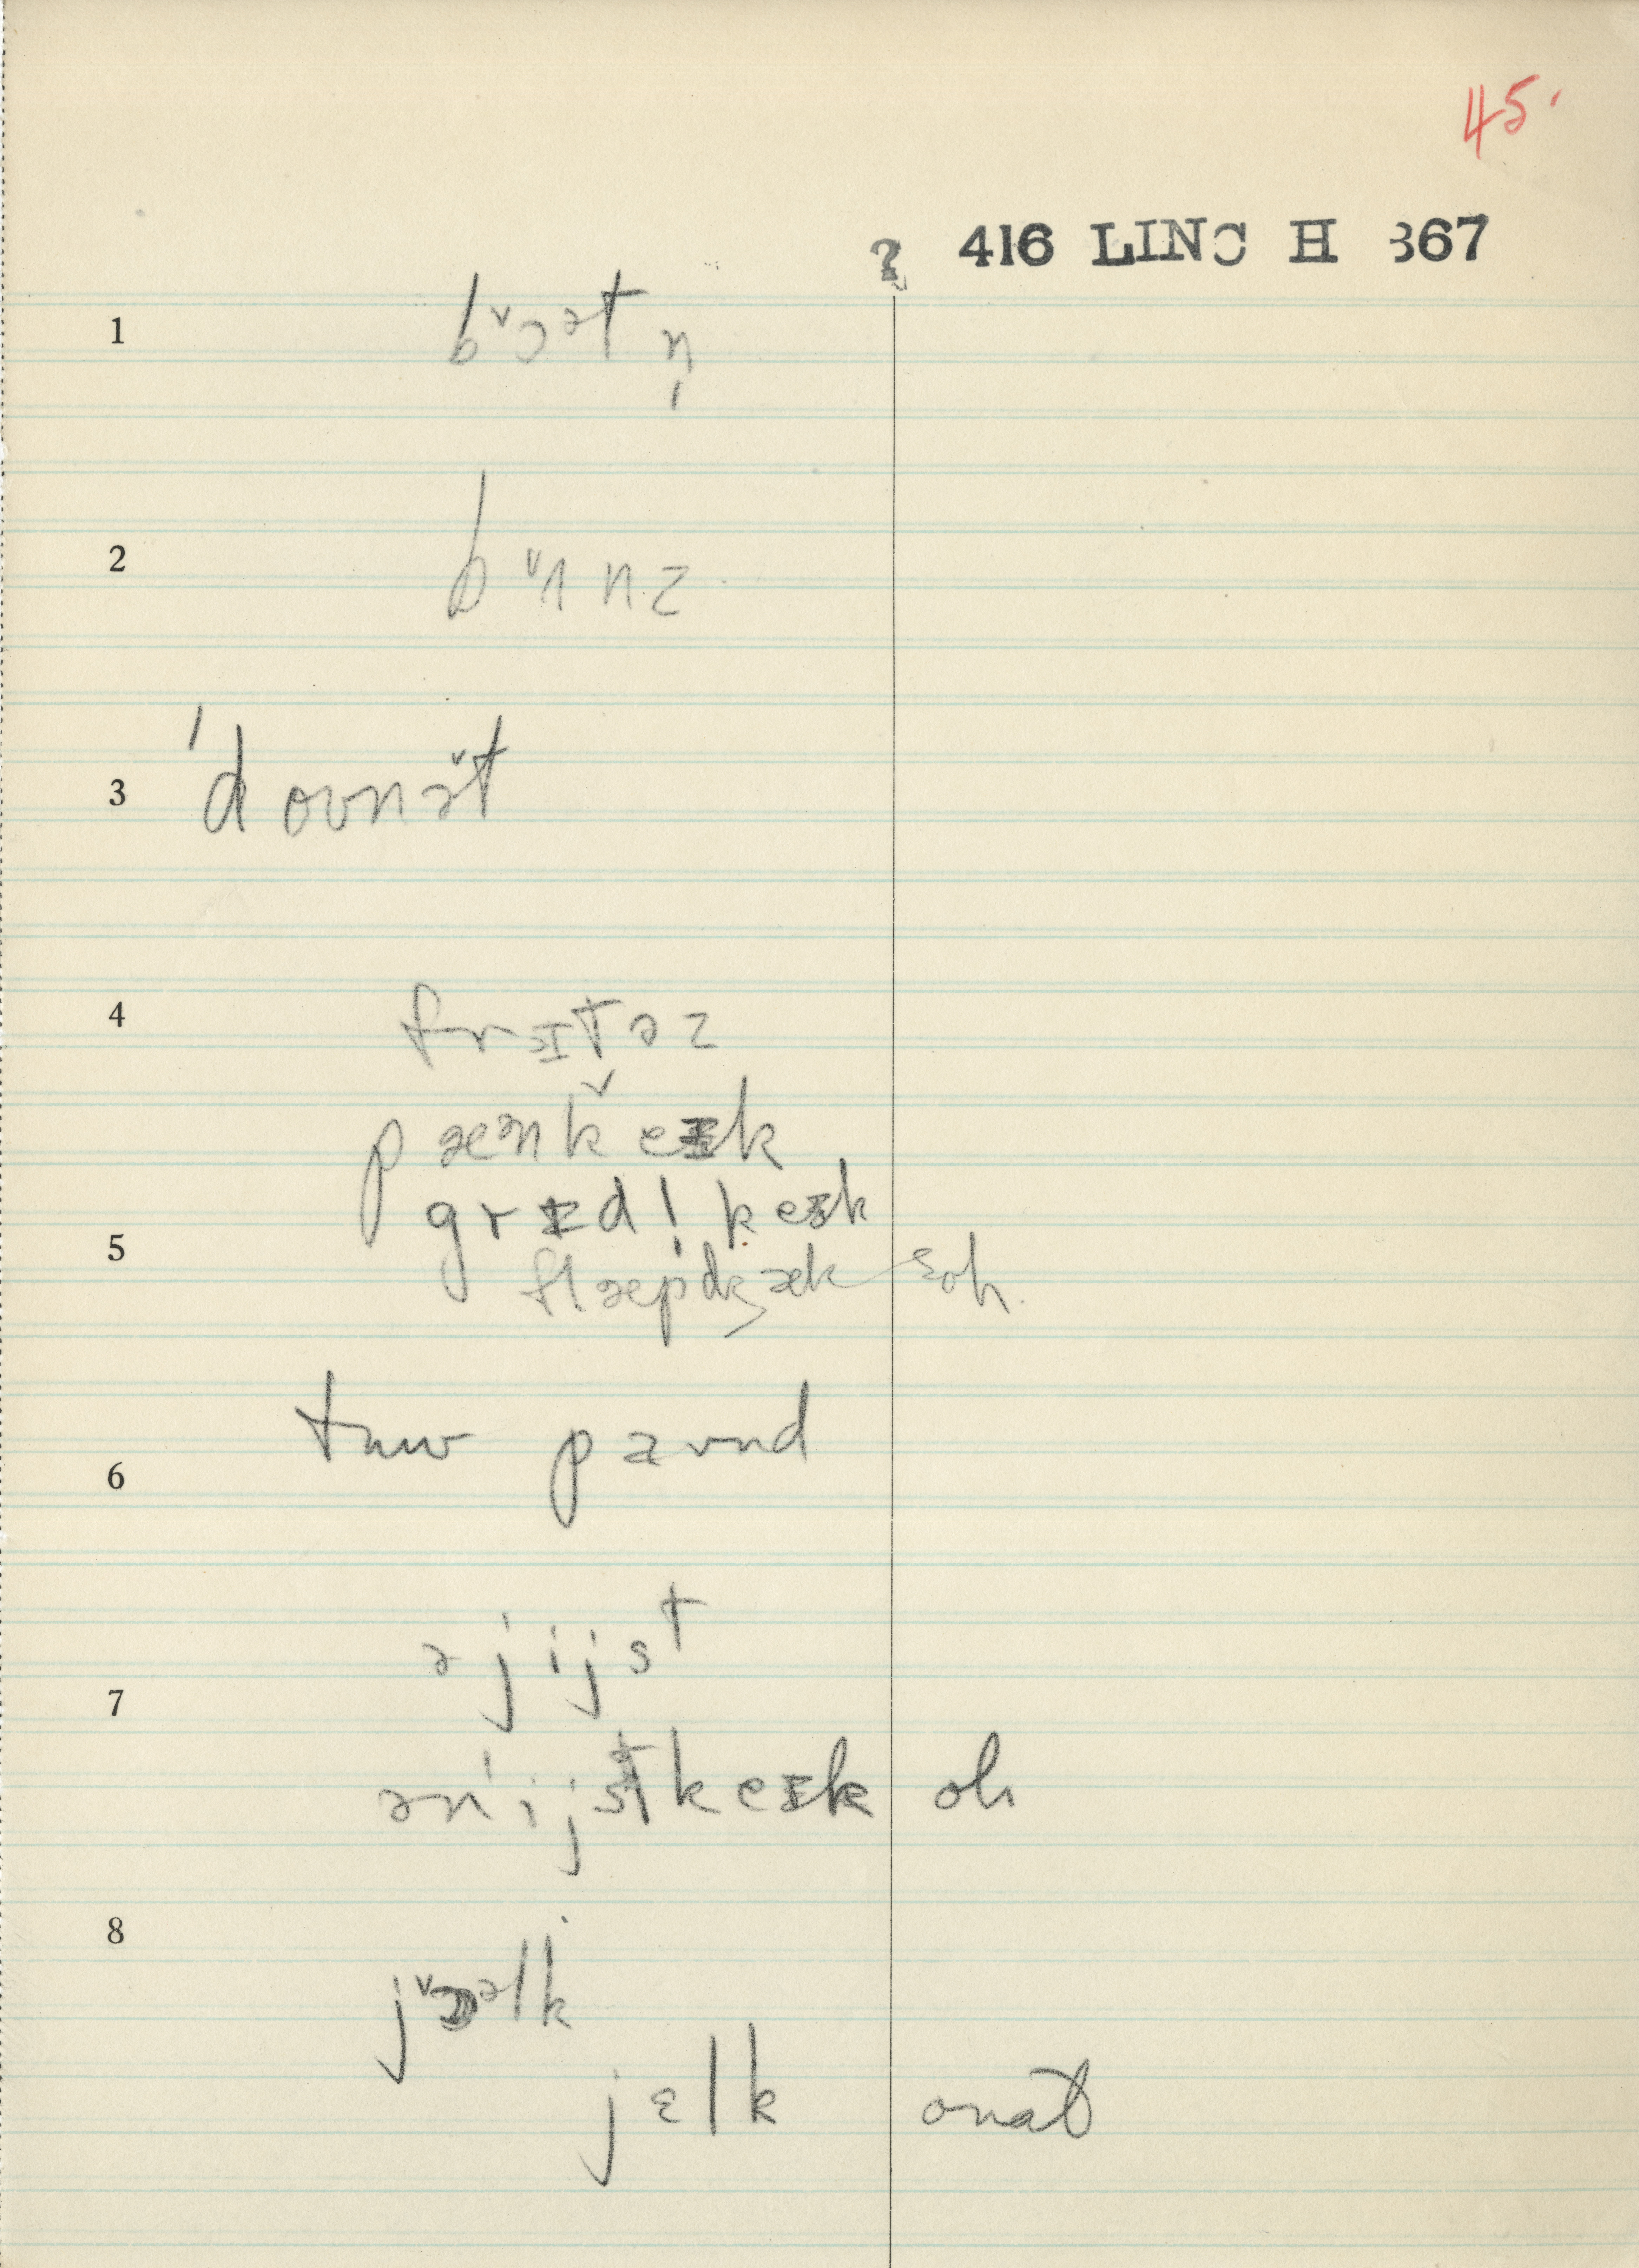 45.
? 416 LINC H 867
1 bᵛɔᵊt n̩
2 bᵛɪ nz
3 ˈdoʊnə̌t
4 frɪtəz
pæᵊnkˇeɪk
grɪdl̩ keɪk
5 flæpdʒæk ɛoh.
6 tuw paʊnd
7 ə jijst
ənˈijstkeɪk oh
8 jᵛɔᵊlk
jɛlk onat